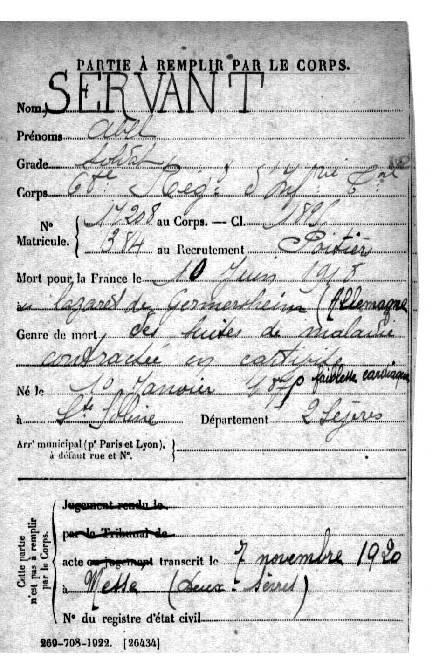 PARTIE À REMPLIR PAR LE CORPS.
Nom SERVANT
Prénoms Abel
Grade Soldat
Corps 68e Régt d'Inf
N° Matricule. { 17208 au Corps. — Cl. 189
384 au Recrutement Poitier
Mort pour la France le 10 Juin 1918
lazaret de Germersheim (Allemagne
Genre de mort des suites de maladie
contractée en captivité
faiblesse cardiaque
Né le 1 Janvier 18
à Ste Soline Département 2 Sèvres
Arrt municipal (pr Paris et Lyon),
à défaut rue et N°.
Cette partie n'est pas à remplir par le Corps.
Jugement rendu le
par le Tribunal de
acte ou jugement transcrit le 7 novembre 1920
à Melle (deux-Sèvres)
N° du registre d'état civil
269-708-1922. [26434]